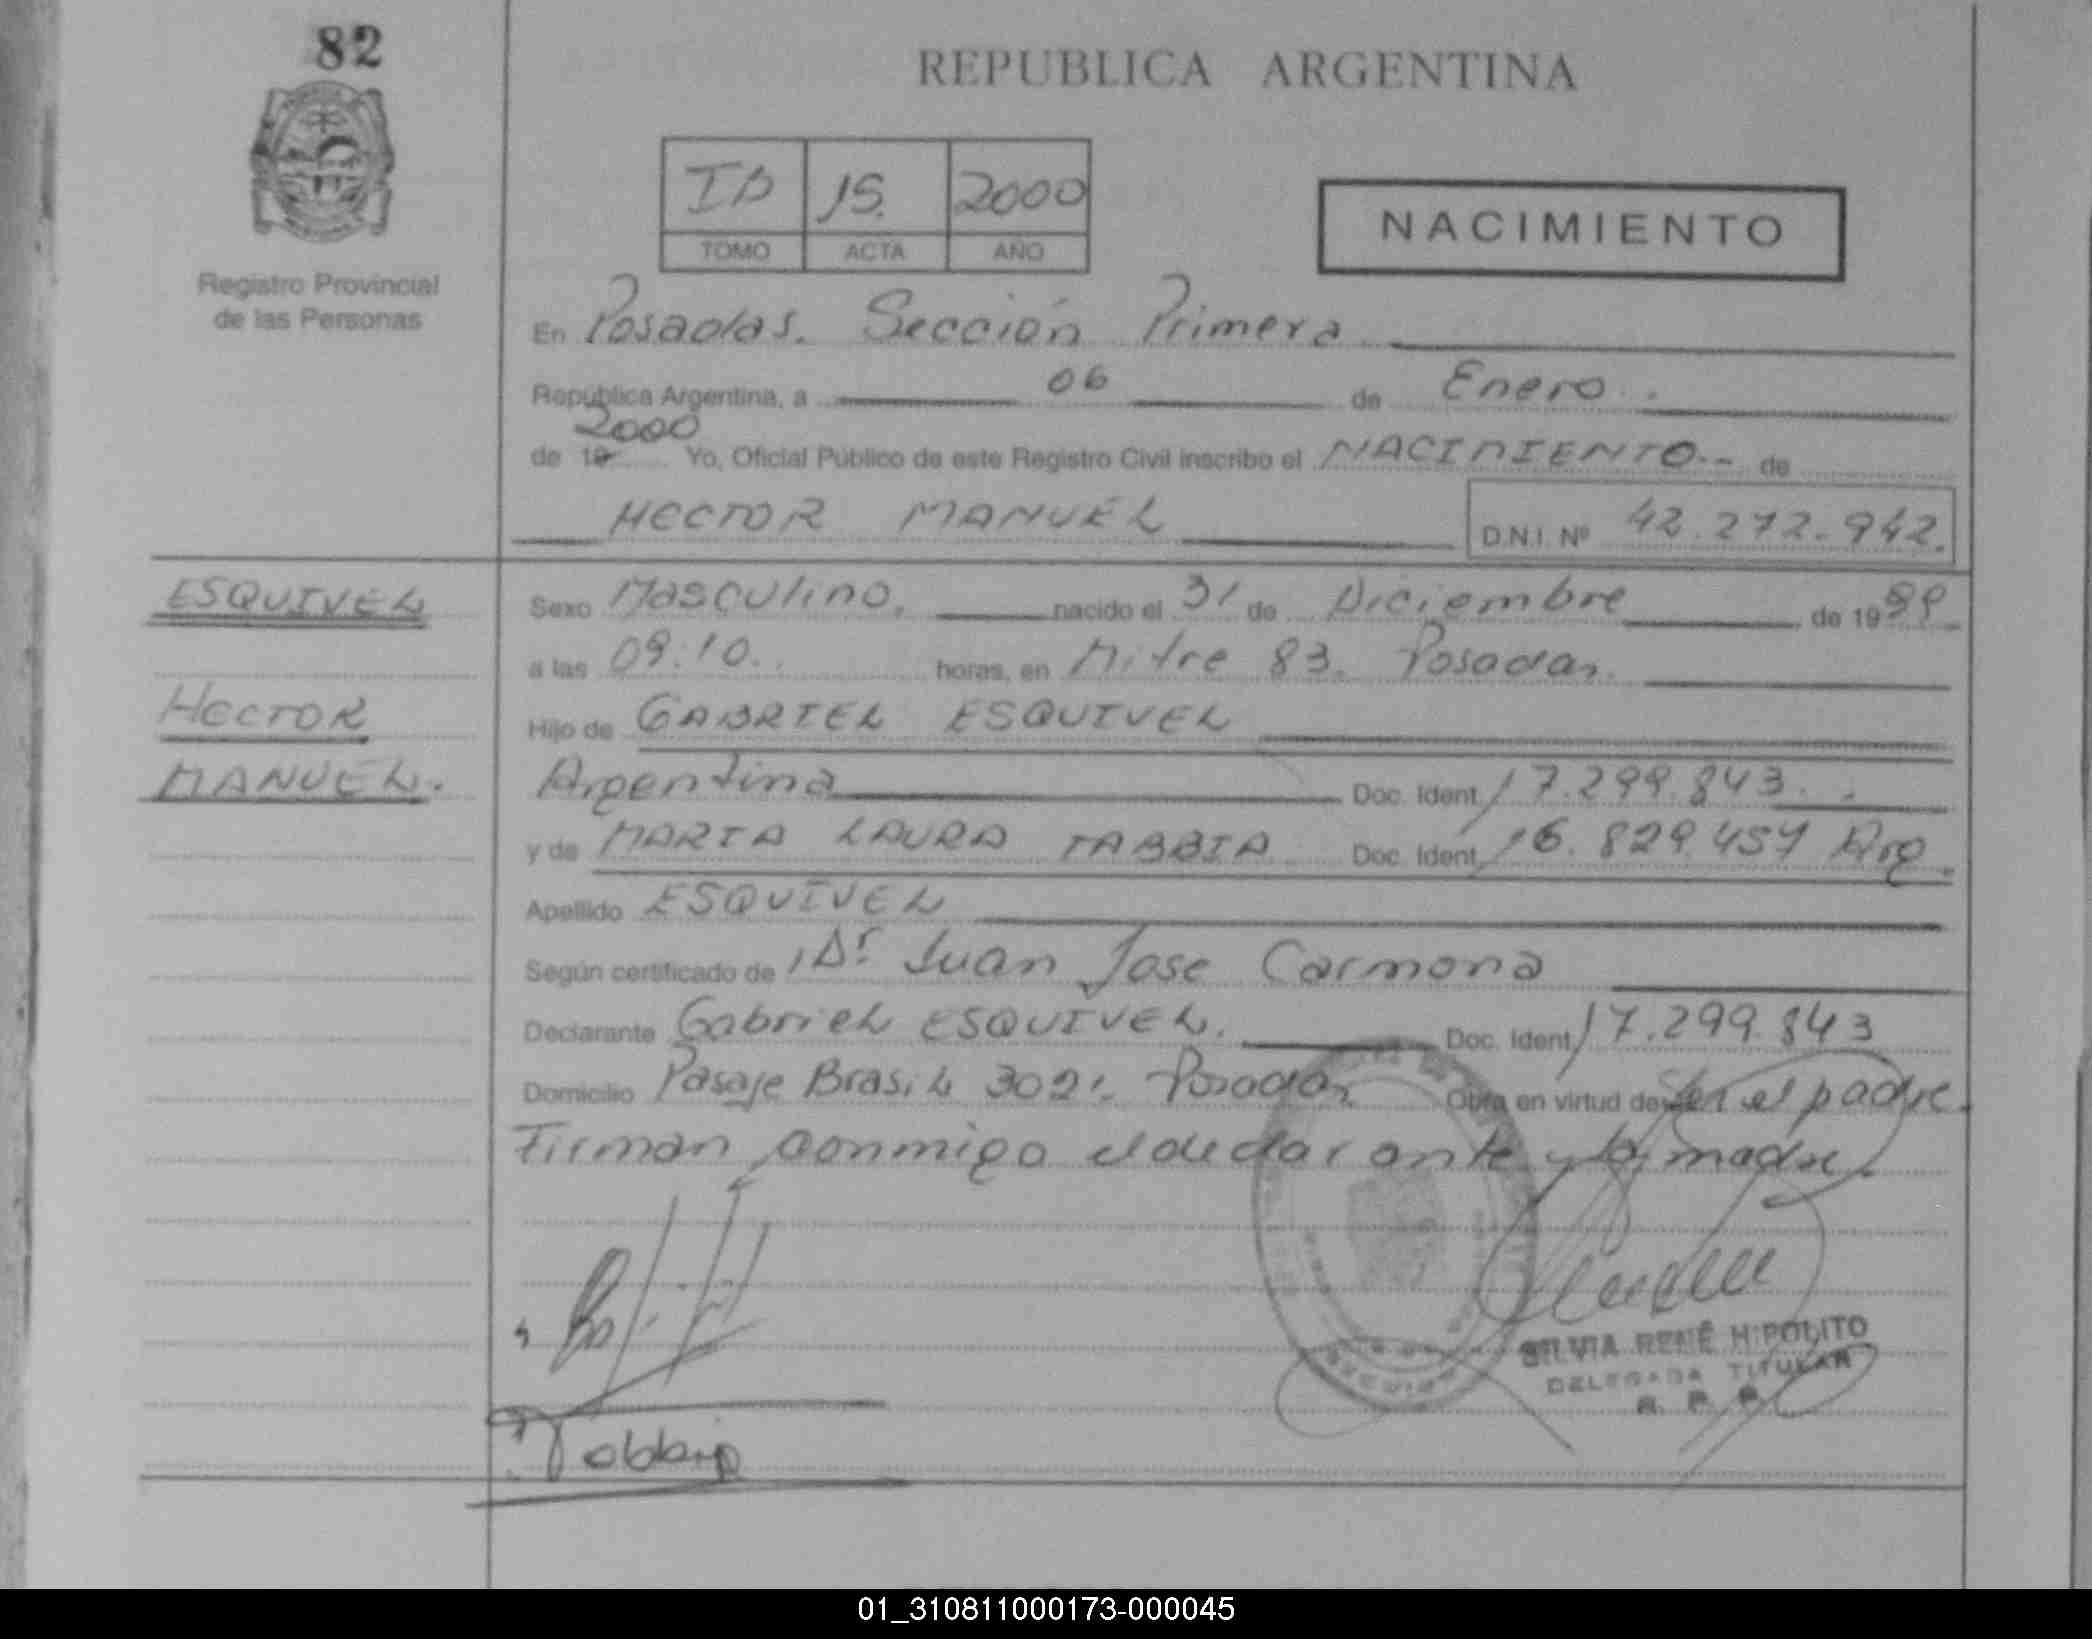 82
REPUBLICA ARGENTINA
Registro Provincial
de las Personas
15. 2000
TOMO ACTA AÑO
NACIMIENTO
En Posadas. Sección Primera
República Argentina, a 06 de Enero.
2000
de 19 Yo, Oficial Público de este Registro Civil inscribo el NACIMIENTO.- de
HECTOR MANUEL D.N.I. Nº 42.272.942.
ESQUIVEL
HECTOR
MANUEL.
Sexo Masculino. nacido el 31 de Diciembre de 1999
a las 09.10. horas, en Mitre 83. Posadas.
Hijo de GABRIEL ESQUIVEL
Argentina Doc. Ident. 17.299.843.
y de MARIA LAURA TABBIA Doc. Ident. 16.829.457 Arg.
Apellido ESQUIVEL
Según certificado de Dr Juan Jose Carmona
Declarante Gabriel ESQUIVEL. Doc. Ident. 17.299.843
Domicilio Pasaje Brasil 302. Posadas Obra en virtud de Ser el padre.
Firman conmigo el declarante y la madre.
SILVIA RENÉ HIPOLITO
DELEGADA TITULAR
R. P. P.
Tabbia
01_310811000173-000045